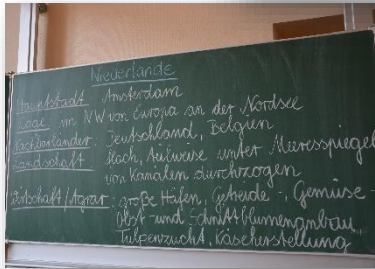 Niederlande
Hauptstadt Amsterdam
Lage: im NW von Europa an der Nordsee
Nachbarländer: Deutschland, Belgien
Landschaft flach, teilweise unter Meeresspiegel
von Kanälen durchzogen
Wirtschaft/Agrar: große Häfen, Getreide-, Gemüse-
Obst- und Schnittblumenanbau,
Tulpenzucht, Käseherstellung